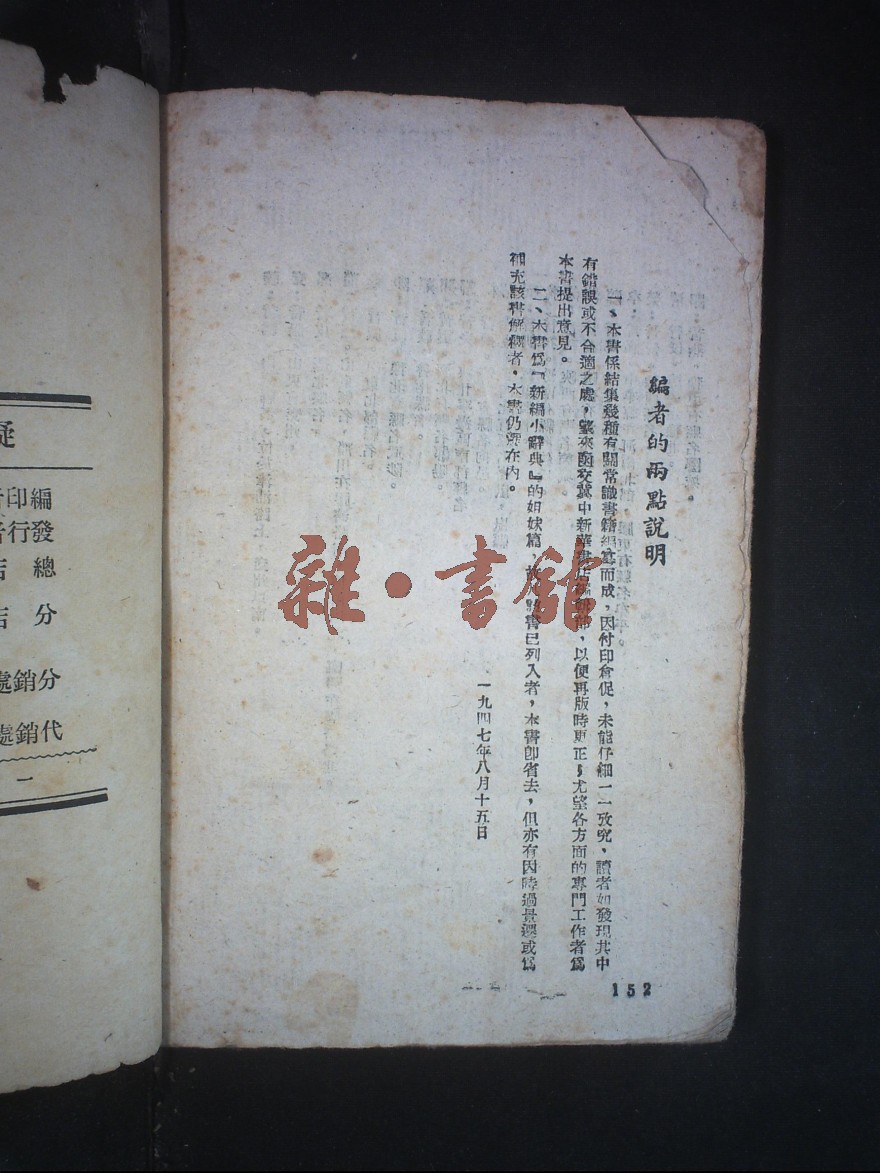 編者的兩點說明
一、本書係結集幾種有關常識書籍編寫而成，因付印倉促，未能仔細一一攷究，讀者如發現其中
有錯誤或不合適之處，望來函交冀中新華書店編輯部，以便再版時更正；尤望各方面的專門工作者爲
本書提出意見。
二、本書爲『新編小辭典』的姐妹篇，故該書已列入者，本書卽省去，但亦有因時過景遷或爲
補充該書解釋者，本書仍列在內。
一九四七年八月十五日
152
雜·書館
疑
編印者
發行者
總店
分店
分銷處
代銷處
一